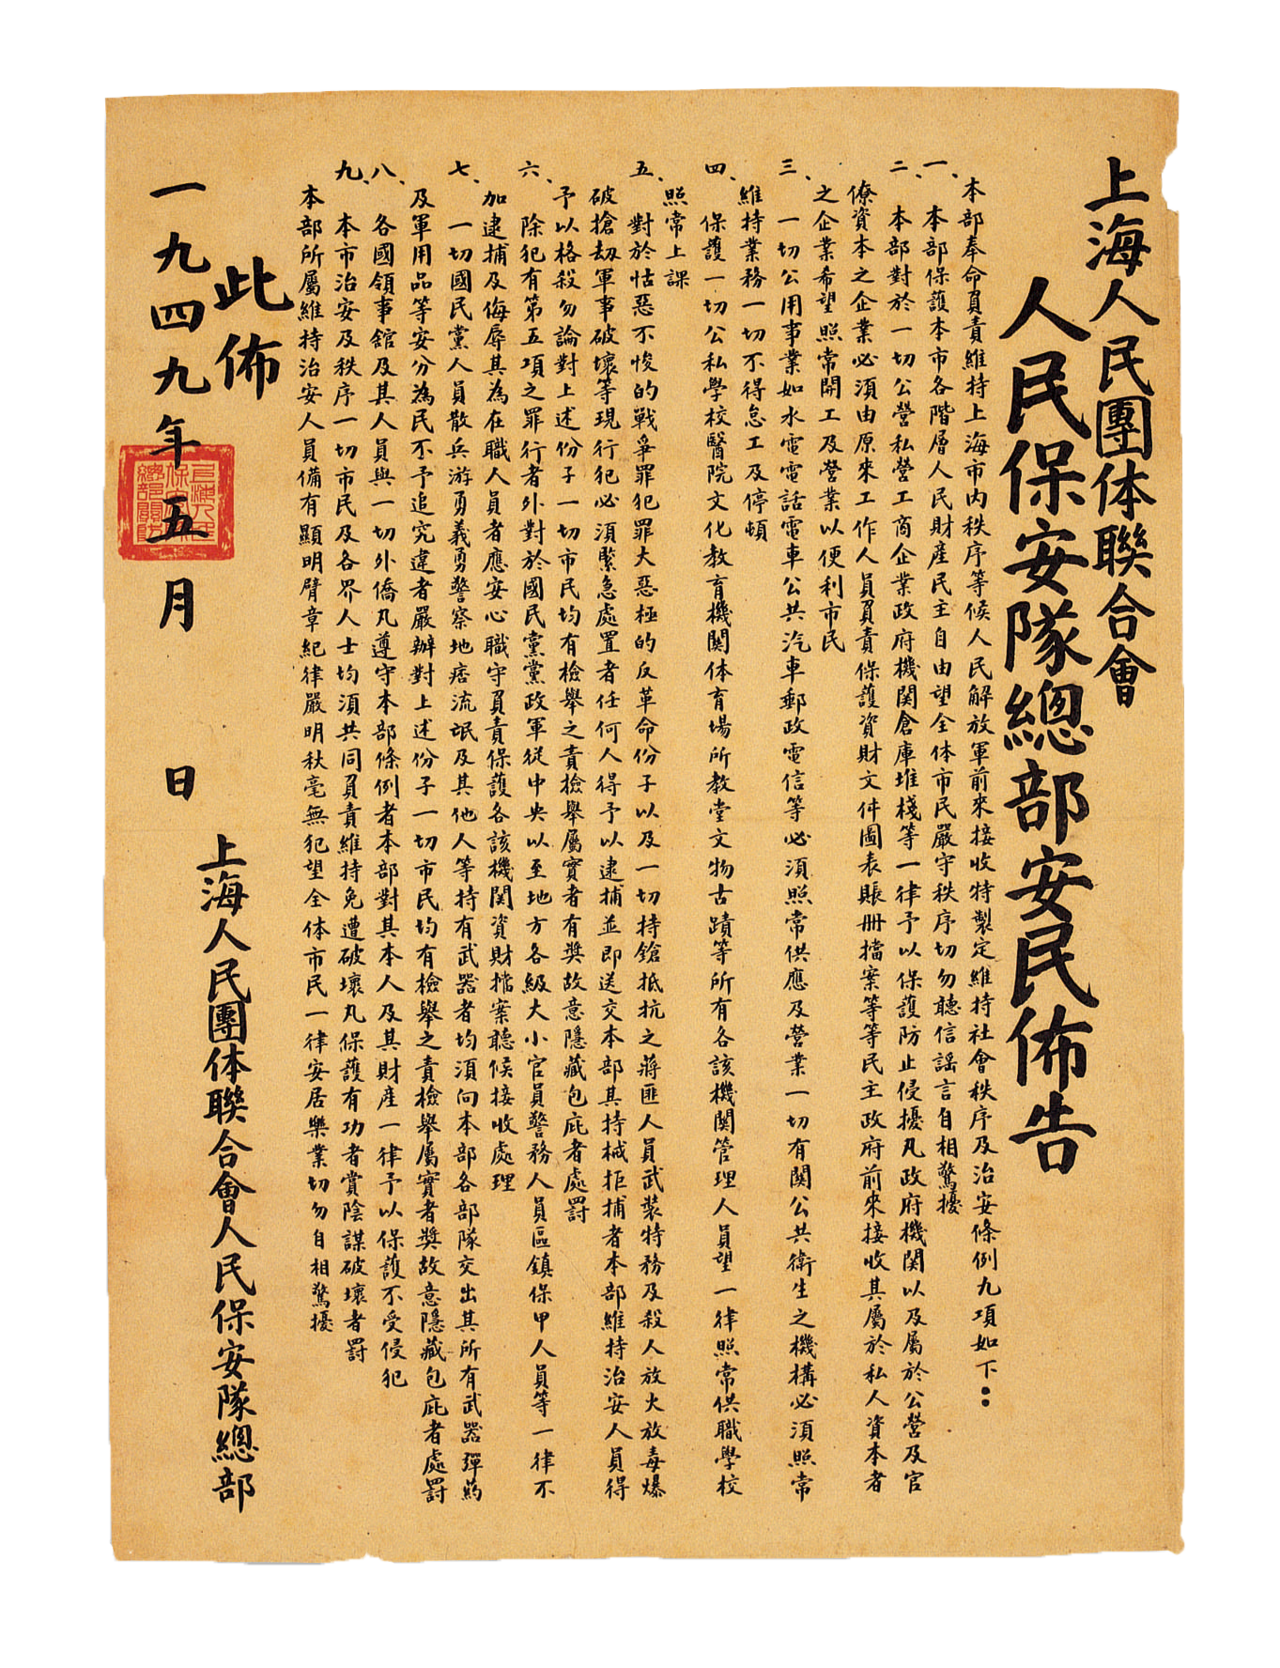 上海人民團体聯合會
人民保安隊總部安民佈告
本部奉命負責維持上海市内秩序等候人民解放軍前來接收特製定維持社會秩序及治安條例九項如下：
一、本部保護本市各階層人民財產民主自由望全体市民嚴守秩序切勿聽信謡言自相驚擾
二、本部對於一切公營私營工商企業政府機関倉庫堆棧等一律予以保護防止侵擾凡政府機関以及屬於公營及官
僚資本之企業必須由原來工作人員負責保護資財文件圖表賬册擋案等等民主政府前來接收其屬於私人資本者
之企業希望照常開工及營業以便利市民
三、一切公用事業如水電電話電車公共汽車郵政電信等必須照常供應及營業一切有関公共衛生之機構必須照常
維持業務一切不得怠工及停頓
四、保護一切公私學校醫院文化教育機関体育場所教堂文物古蹟等所有各該機関管理人員望一律照常供職學校
照常上課
五、對於怙惡不悛的戰爭罪犯罪大惡極的反革命份子以及一切持鎗抵抗之蔣匪人員武裝特務及殺人放火放毒爆
破搶刼軍事破壞等現行犯必須緊急處置者任何人得予以逮捕並即送交本部其持械拒捕者本部維持治安人員得
予以格殺勿論對上述份子一切市民均有檢舉之責檢舉屬實者有奬故意隱藏包庇者處罰
六、除犯有第五項之罪行者外對於國民黨黨政軍從中央以至地方各級大小官員警務人員區鎮保甲人員等一律不
加逮捕及侮辱其為在職人員者應安心職守負責保護各該機関資財擋案聽候接收處理
七、一切國民黨人員散兵游勇義勇警察地痞流氓及其他人等持有武器者均須向本部各部隊交出其所有武器彈葯
及軍用品等安分為民不予追究違者嚴辦對上述份子一切市民均有檢舉之責檢舉屬實者奬故意隱藏包庇者處罰
八、各國領事舘及其人員與一切外僑凡遵守本部條例者本部對其本人及其財產一律予以保護不受侵犯
九、本市治安及秩序一切市民及各界人士均須共同負責維持免遭破壞凡保護有功者賞陰謀破壞者罰
本部所屬維持治安人員備有顯明臂章紀律嚴明秋毫無犯望全体市民一律安居樂業切勿自相驚擾
此佈
上海人民團体聯合會人民保安隊總部
一九四九年五月　日